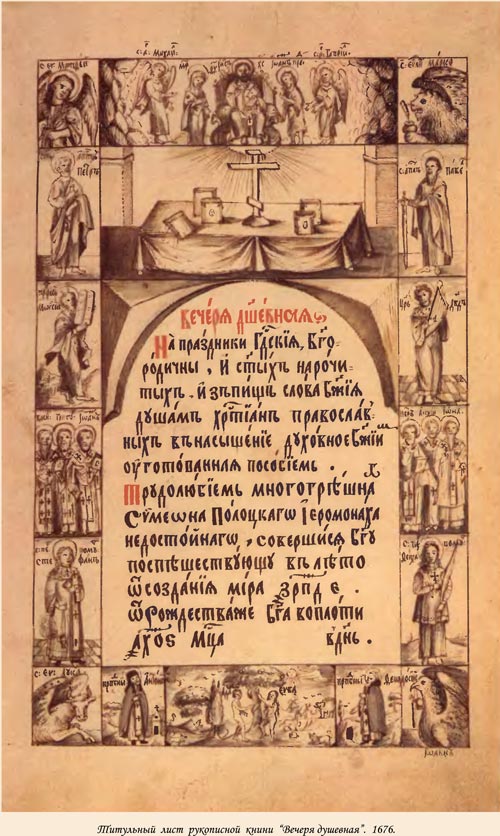 С: А҃: МИХАИ
С: А҃: ГАВРІИ
ПЕТРЪ
ПАВЕ
ВЕЧЕРѦ ДШ҃ЕВНАѦ
На праздники Гд҃скїѧ, Бг҃о
родичны, и ст҃ыхъ нарочи
тыхъ. и зъ пищъ слова Бж҃їѧ
душамъ хр҃тїанъ православ
ныхъ въ насыщенїе духовное Бж҃їим
оуготованная пособїемъ.
Трудолюбїемъ многогрѣшна
Сѵмеѡна Полоцкагѡ Їеромонаха
недостойнагѡ, совершися Бг҃у
поспѣшествующу въ лѣто
ѿ созданїя мїра ЗРПД Є.
ѿ Рождестваже Бг҃а воплоти
АХОЅ Мц҃а в днь.
С: ЕѴ: ЛУКА
Титульный лист рукописной книги "Вечеря душевная". 1676.